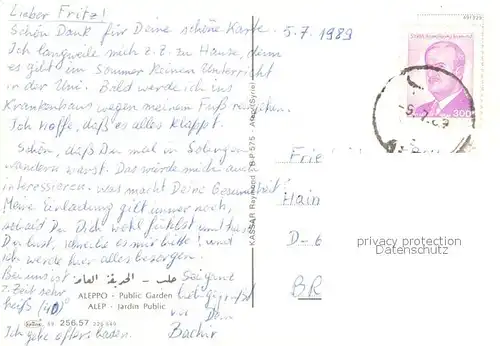 Lieber Fritz!
Schön Dank für Deine schöne Karte. 5.7.1989
Ich langweile mich z.Z. zu Hause, denn
es gibt im Sommer keinen Unterricht
in der Uni. Bald werde ich ins
Krankenhaus wegen meinem Fuß
Ich hoffe, daß es alles klappt.
Schön, daß Du mal in Solingen
wandern warst. Das würde mich auch
interessieren. was macht Deine Gesundheit?
Meine Einladung gilt immer noch,
sobald Du Dich wohl fühlst und hast
Du Lust, schreibe es mir bitte! und
ich werde hier alles besorgen.
Bei uns ist
z.Zeit sehr
heiß (40)°
Ich gehe öfters baden.
حلب - الحديقة العامة
ALEPPO - Public Garden
ALEP - Jardin Public
256.57
Sei ganz
von Dem
Bachir
KASSAR Raymond - B.P 575 - Alep (Syrie)
SYRIA
300
-5.7.89
Hain
D-6
BR
privacy protection
Datenschutz